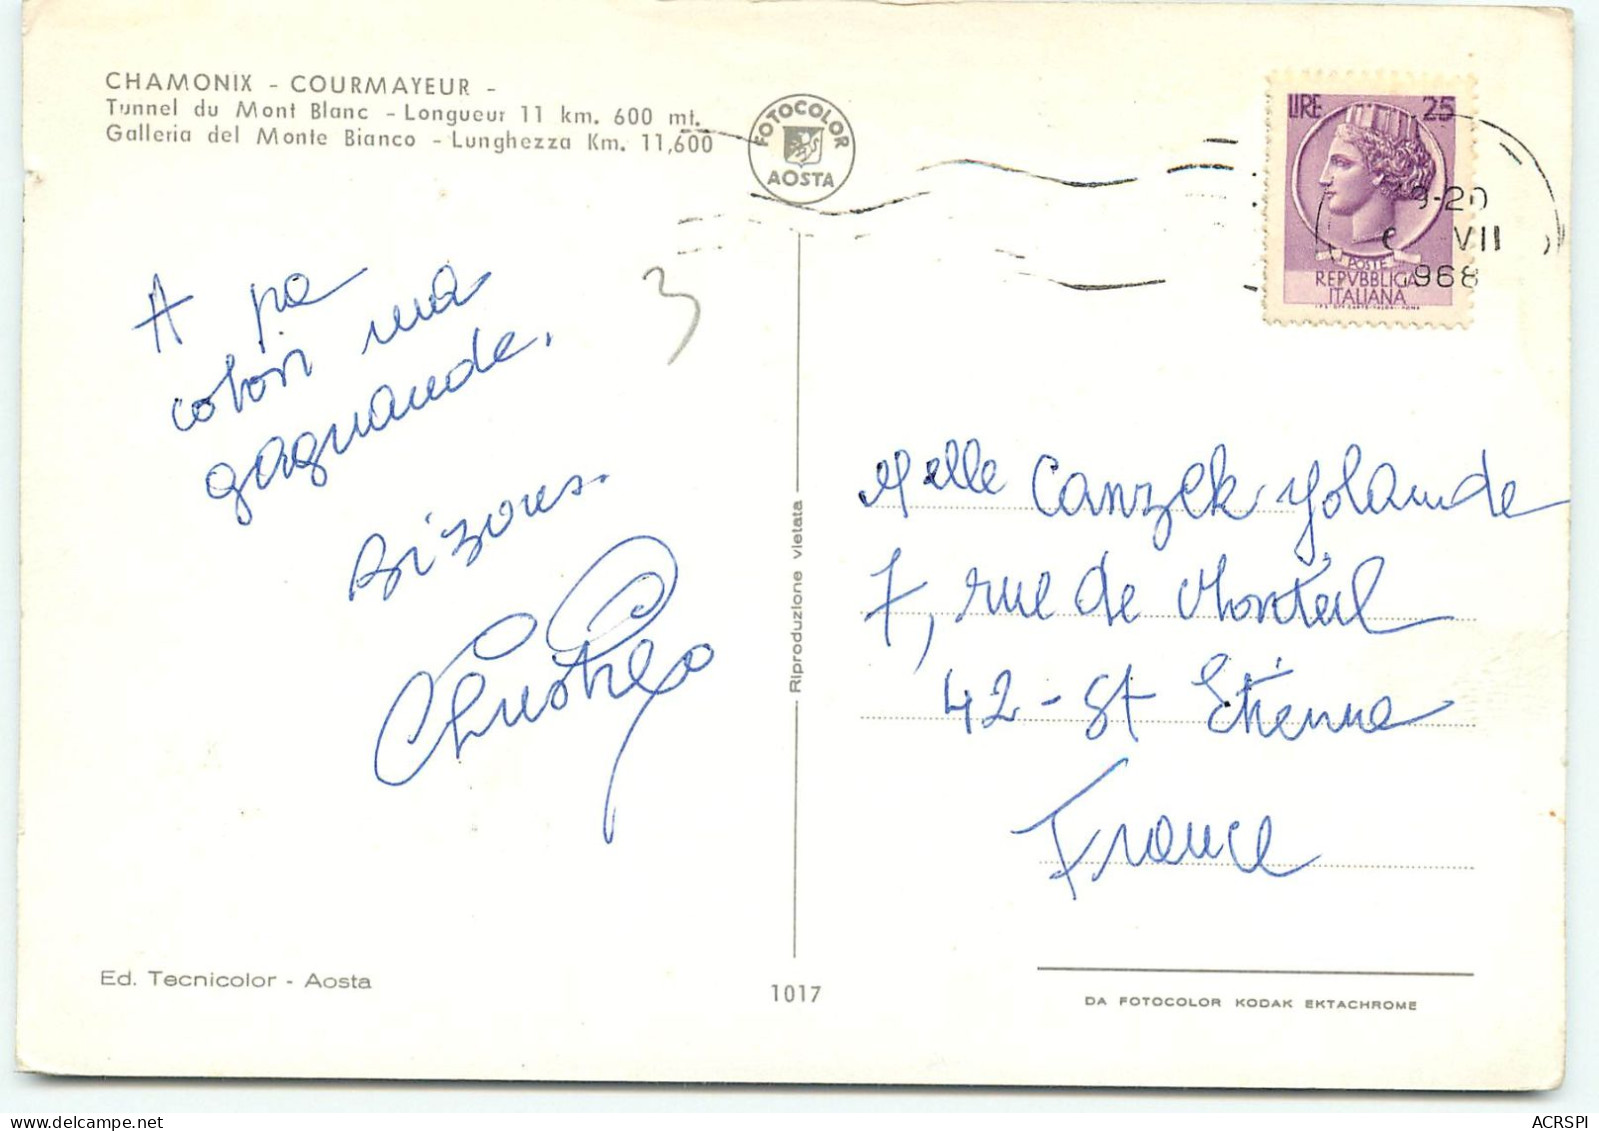 CHAMONIX - COURMAYEUR -
Tunnel du Mont Blanc - Longueur 11 km. 600 mt.
Galleria del Monte Bianco - Lunghezza Km. 11,600
FOTOCOLOR
AOSTA
LIRE 25
POSTE
REPVBBLICA
ITALIANA
-20
VII
968
3
A pa
una
gagnande.
Bizous.
Riproduzione vietata
Melle Canzek Yolande
7, rue de Monteil
42 - St Etienne
France
Ed. Tecnicolor - Aosta
1017
DA FOTOCOLOR KODAK EKTACHROME
ACRSPI